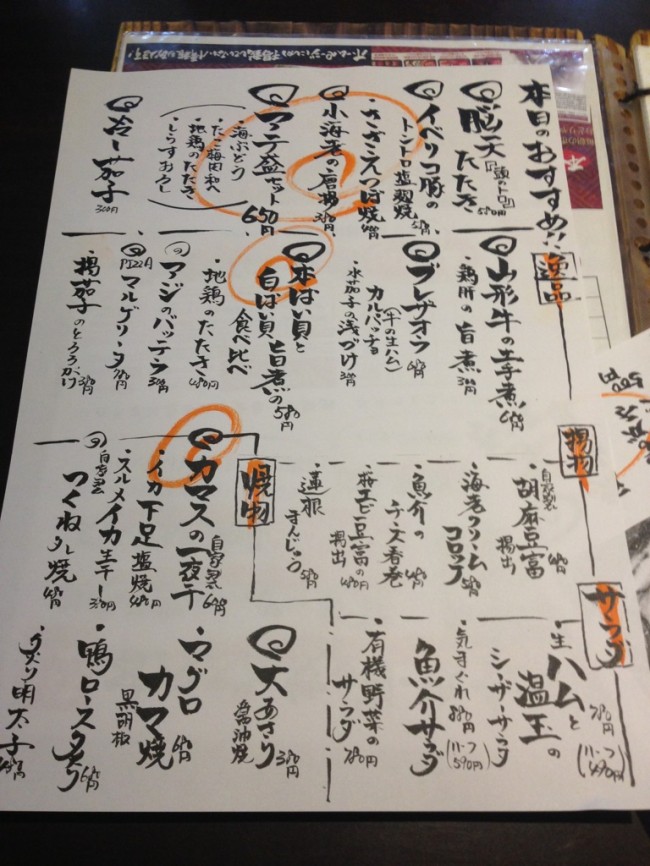 本日のおすすめ!!
逸品
脳天のたたき
「頭のトロ」
580円
イベリコ豚の
トントロ塩麹焼
さざえつぼ焼
小海老の唐揚
アテ盛セット
650円
海ぶどう
たこ梅肉和へ
地鶏のたたき
しらすおろし
冷し茄子
300円
山形牛の生姜煮
鶏肝の旨煮
ブレザオラ
(牛の生ハム)
カルパッチョ
水茄子の浅づけ
本ばい貝と
白ばい貝旨煮の
食べ比べ
580円
地鶏のたたき
480円
アジのバッテラ
PIZZA
マルゲリータ
揚茄子のとろろがけ
揚物
自家製
胡麻豆富
揚出
海老クリーム
コロッケ
魚介の
チーズ春巻
桜エビ豆富の
揚出
蓮根
まんじゅう
焼物
カマスの一夜干
自家製
イカ下足塩焼
スルメイカ生干し
つくねタレ焼
サラダ
生ハムと
温玉の
シーザーサラダ
780円
(ハーフ490円)
魚介サラダ
気まぐれ
880円
(ハーフ590円)
有機野菜の
サラダ
780円
大あさり
醤油焼
380円
マグロ
カマ焼
黒胡椒
鴨ロースタタキ
タタリ明太子